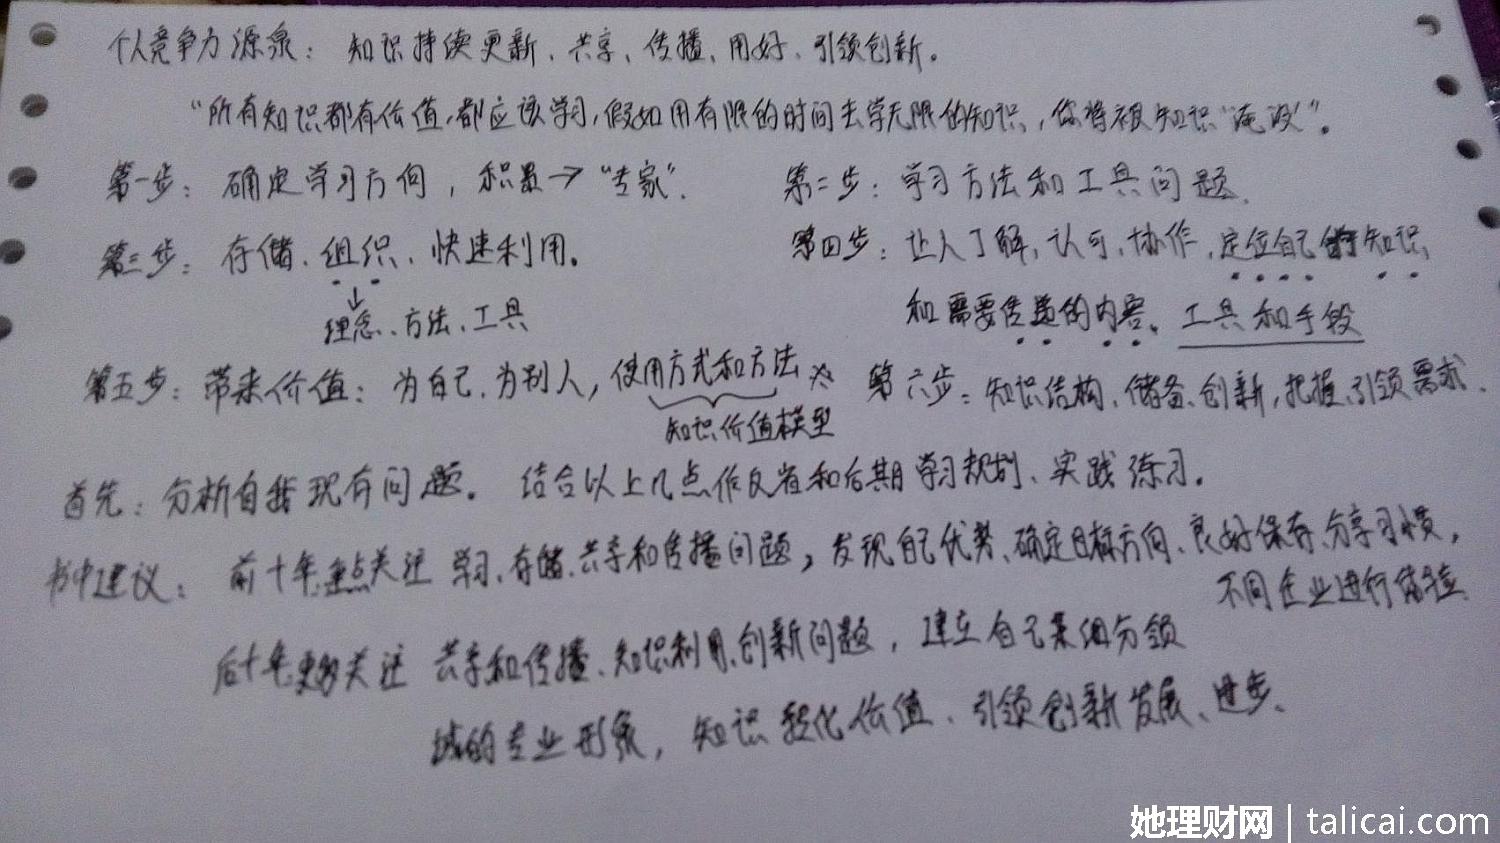 个人竞争力源泉：知识持续更新、共享、传播、用好、引领创新。
“所有知识都有价值，都应该学习，假如用有限的时间去学无限的知识，你将被知识“淹没”。
第一步：确定学习方向，积累→“专家”.
第二步：学习方法和工具问题.
第三步：存储、组织、快速利用。
↓
理念、方法、工具
第四步：让人了解、认可、协作、定位自己的知识
和需要传递的内容。工具和手段
第五步：带来价值：为自己、为别人，使用方式和方法
知识价值模型
第六步：知识结构、储备、创新，把握、引领需求.
首先：分析自我现有问题。结合以上几点作反省和后期学习规划、实践练习。
书中建议：前十年重点关注学习、存储、共享和传播问题，发现自己优势、确定目标方向、良好保存、分享习惯，
不同企业进行体验
后十年更多关注共享和传播、知识利用、创新问题，建立自己某细分领
域的专业形象，知识转化价值、引领创新发展、进步、
她理财网 | talicai.com